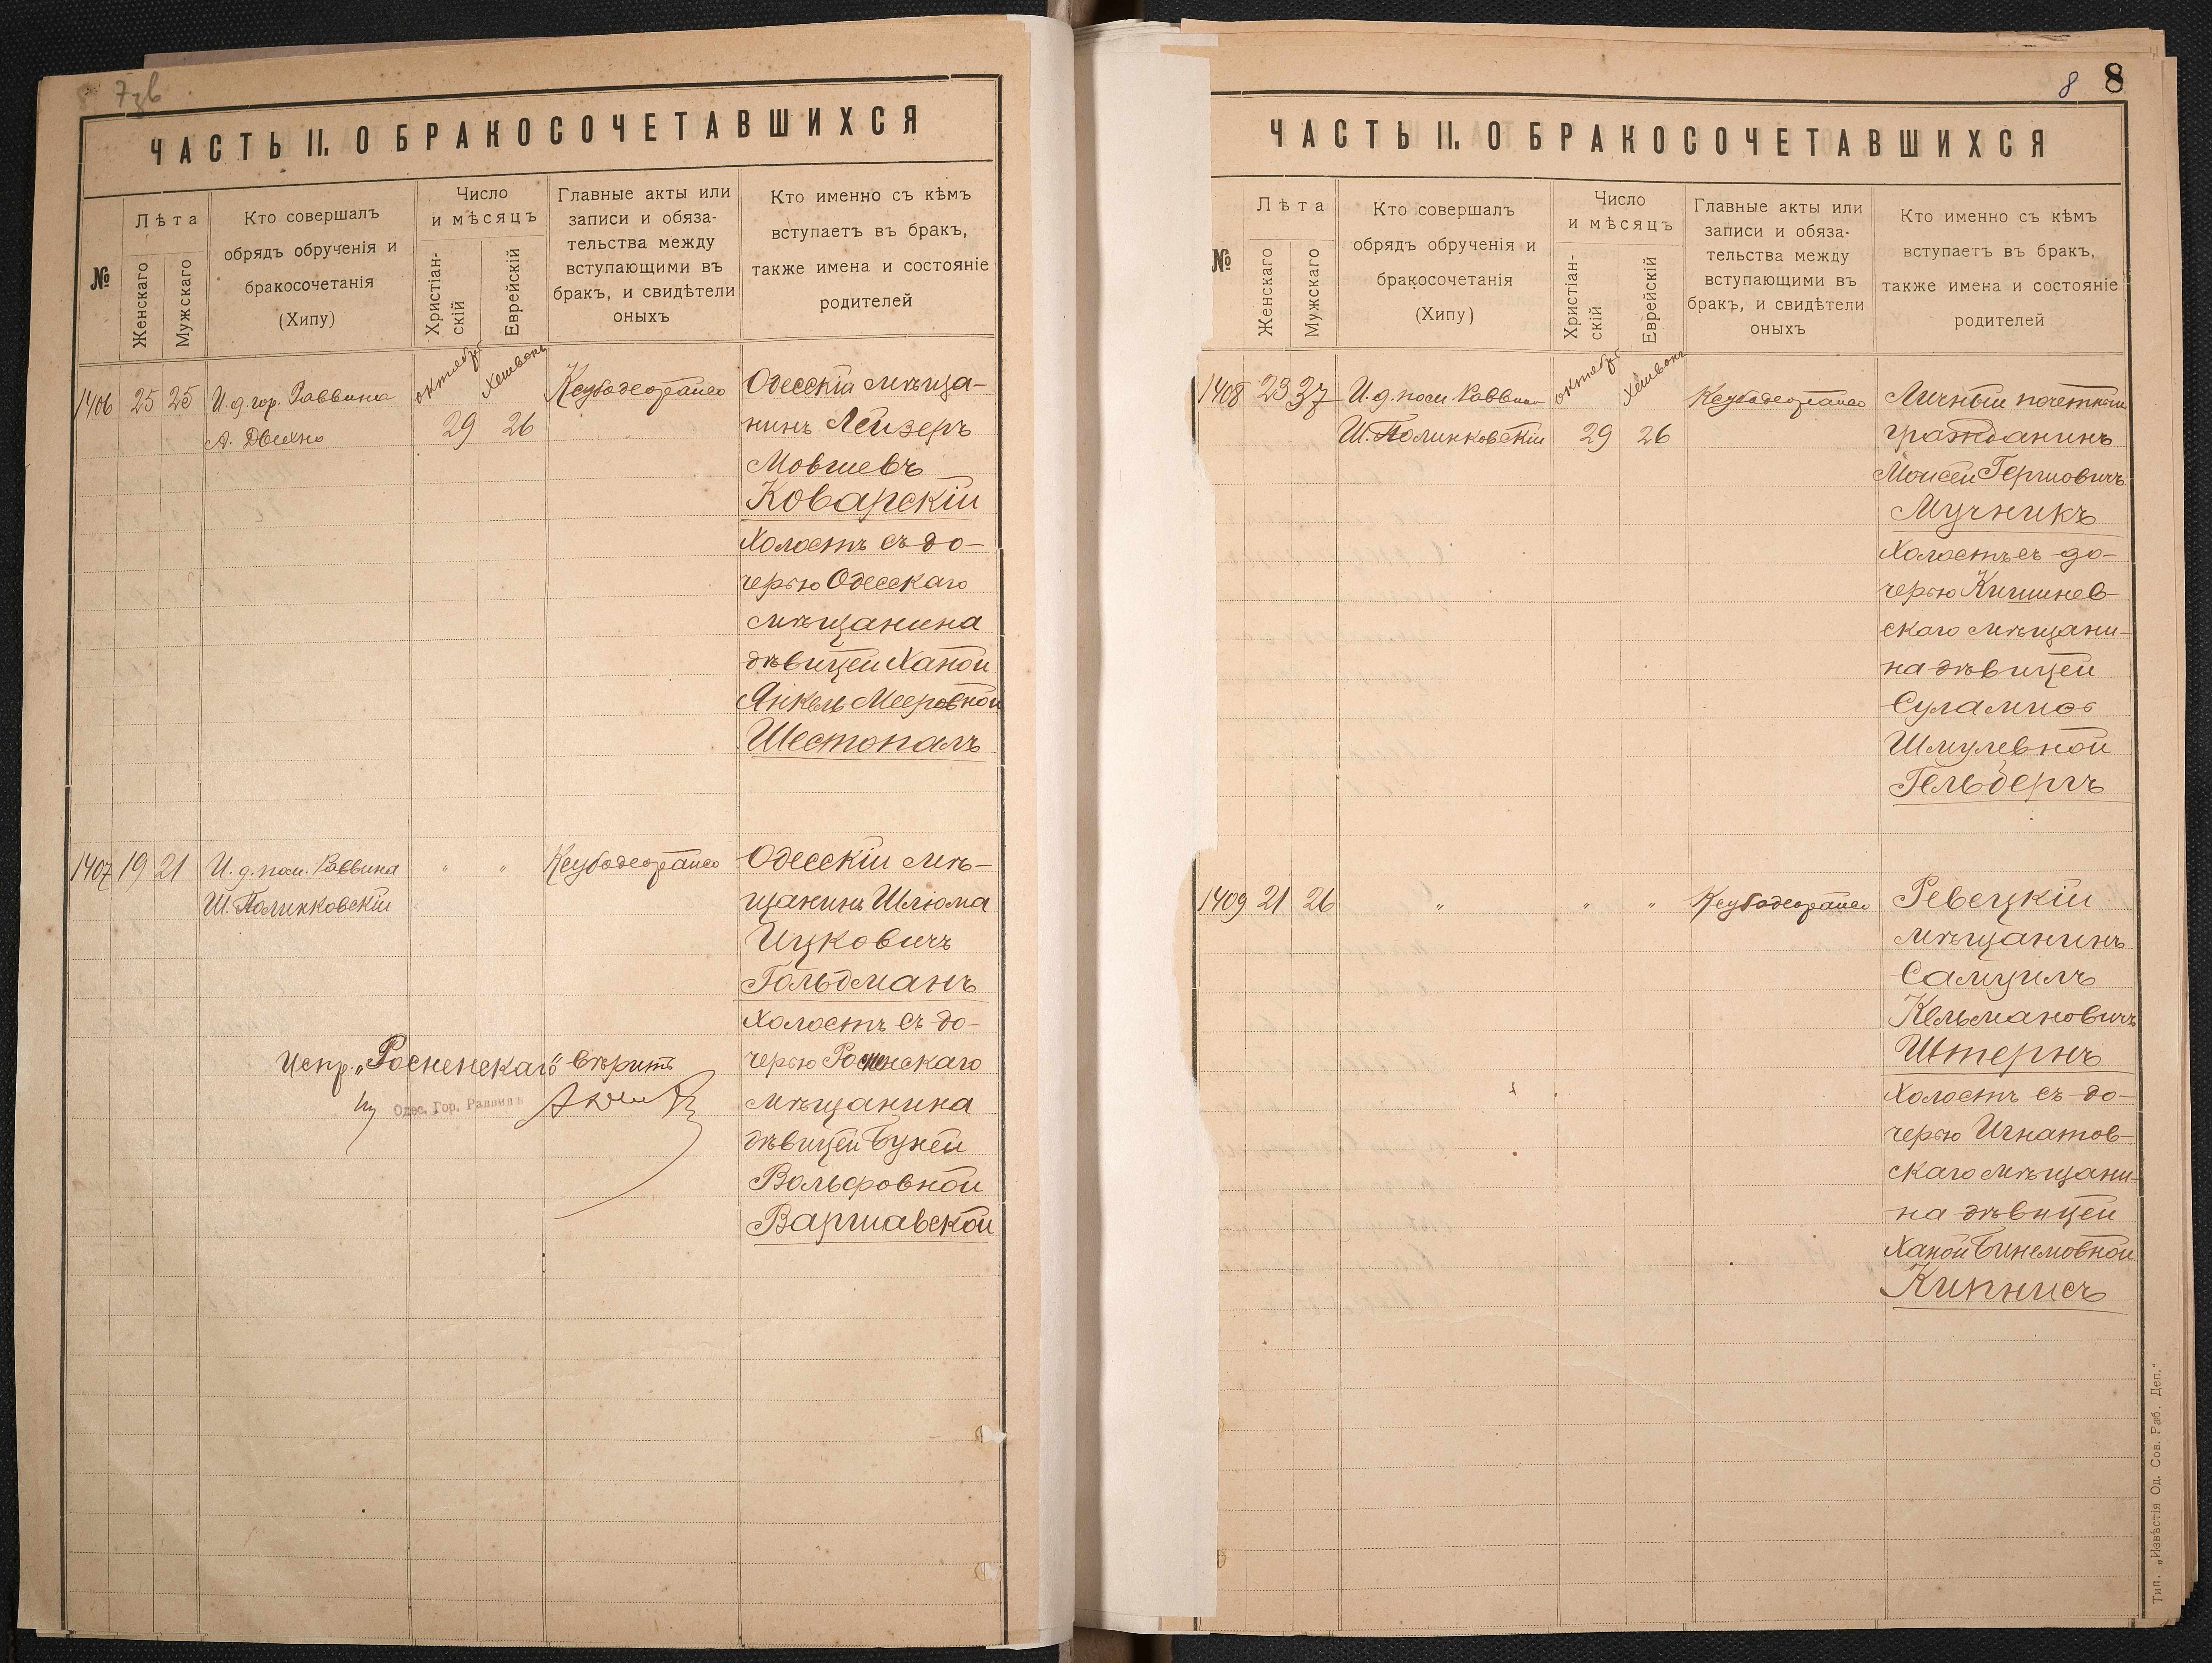 7 зв
ЧАСТЬ II. О БРАКОСОЧЕТАВШИХСЯ
№
Лѣта
Женскаго
Мужскаго
Кто совершалъ
обрядъ обрученія и
бракосочетанія
(Хипу)
Число
и мѣсяцъ
Христіан-
скій
Еврейскій
Главные акты или
записи и обяза-
тельства между
вступающими въ
бракъ, и свидѣтели
оныхъ
Кто именно съ кѣмъ
вступаетъ въ бракъ,
также имена и состояніе
родителей
1406 25 25
И. д. гор. Раввина
А. Двехно
октября
29
Хешвонъ
26
Одесскій мѣща-
нинъ Лейзеръ
Мовшевъ
Коварскій
Холостъ съ до-
черью Одесскаго
мѣщанина
дѣвицей Ханой
Янкель Мееровной
Шестопалъ
1407 19 21
И. д. пом. Раввина
Ш. Полинковскій
" "
Одесскій мѣ-
щанинъ Шлюма
Ицковичъ
Гольдманъ
Холостъ съ до-
черью Росненскаго
мѣщанина
дѣвицей Буней
Вольфовной
Варшавской
Испр. „Росненскаго" вѣрить
Одес. Гор. Раввинъ
8 8
ЧАСТЬ II. О БРАКОСОЧЕТАВШИХСЯ
№
Лѣта
Женскаго
Мужскаго
Кто совершалъ
обрядъ обрученія и
бракосочетанія
(Хипу)
Число
и мѣсяцъ
Христіан-
скій
Еврейскій
Главные акты или
записи и обяза-
тельства между
вступающими въ
бракъ, и свидѣтели
оныхъ
Кто именно съ кѣмъ
вступаетъ въ бракъ,
также имена и состояніе
родителей
1408 23 37
И. д. пом. Раввина
Ш. Полинковскій
октября
29
Хешвонъ
26
Личный почетный
гражданинъ
Моисей Гершовичъ
Мучникъ
Холостъ съ до-
черью Кишинев-
скаго мѣщани-
на дѣвицей
Суламиѳ
Шмулевной
Гельбергъ
1409 21 26
" " "
Ревецкій
мѣщанинъ
Самуилъ
Кельмановичъ
Штернъ
Холостъ съ до-
черью Игнатов-
скаго мѣщани-
на дѣвицей
Ханой Бинемовной
Кипнисъ
Тип. „Извѣстія Од. Сов. Раб. Деп."